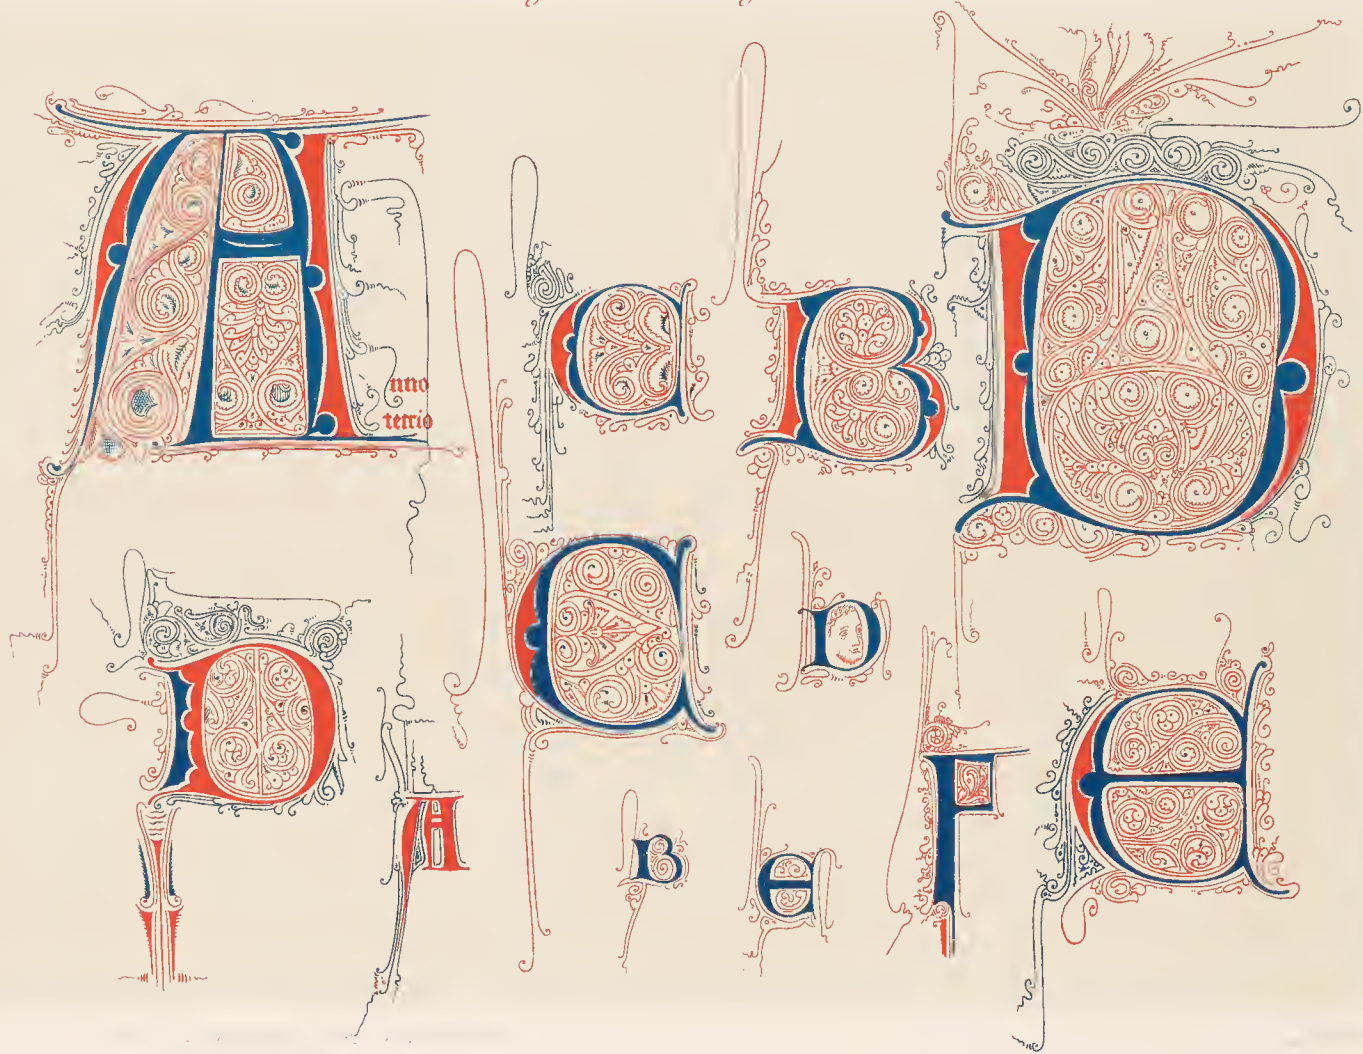 A
nno
tercio
C
B
D
D
C
D
A
B
E
F
E